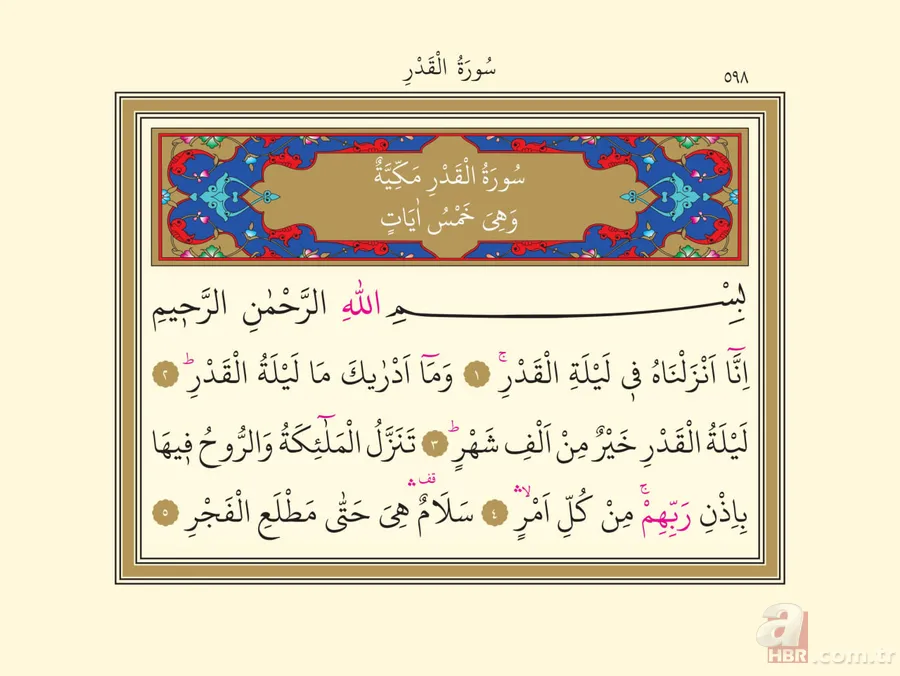 سُورَةُ الْقَدْرِ
٥٩٨
سُورَةُ الْقَدْرِ مَكِّيَّةٌ
وَهِىَ خَمْسُ اٰيَاتٍ
بِسْمِ اللّٰهِ الرَّحْمٰنِ الرَّح۪يمِ
اِنَّٓا اَنْزَلْنَاهُ ف۪ي لَيْلَةِ الْقَدْرِۚ ١ وَمَٓا اَدْرٰيكَ مَا لَيْلَةُ الْقَدْرِۜ ٢
لَيْلَةُ الْقَدْرِ خَيْرٌ مِنْ اَلْفِ شَهْرٍۜ ٣ تَنَزَّلُ الْمَلٰٓئِكَةُ وَالرُّوحُ ف۪يهَا
بِاِذْنِ رَبِّهِمْۚ مِنْ كُلِّ اَمْرٍۙۛ ٤ سَلَامٌ۠ۛ قف هِىَ حَتّٰى مَطْلَعِ الْفَجْرِ ٥
a
HBR.com.tr